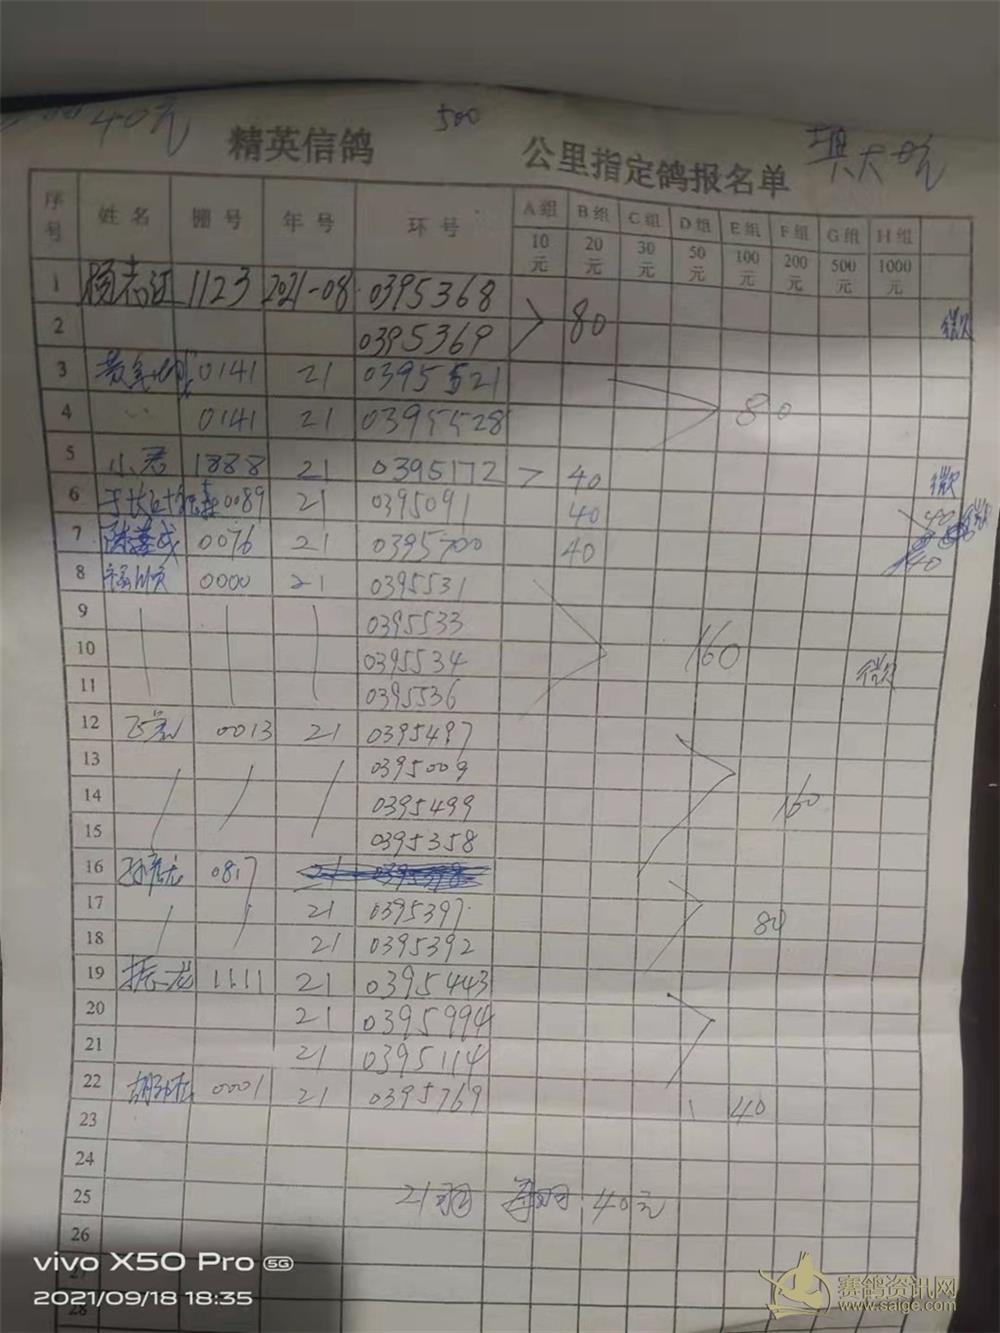 40元
500
精英信鸽 公里指定鸽报名单
序号 姓名 棚号 年号 环号 A组 B组 C组 D组 E组 F组 G组 H组
10元 20元 30元 50元 100元 200元 500元 1000元
1 1123 2021-08 0395368
80
2 0395369
3 0141 21 0395521
80
4 0141 21 0395528
5 小君 1888 21 0395172 40
6 0089 21 0395091 40 40
7 0076 21 0395700 40 40
8 0000 21 0395531
9 0395533
10 0395534 160
11 0395536
12 0013 21 0395497
13 0395009
14 0395499 160
15 0395358
16 0817 21
17 21 0395397 80
18 21 0395392
19 1111 21 0395443
20 21 0395994
21 21 0395114
22 0001 21 0395769 40
23
24
25 21羽 每羽 40元
26
27
28
vivo X50 Pro 5G
2021/09/18 18:35
赛鸽资讯网
www.saige.com